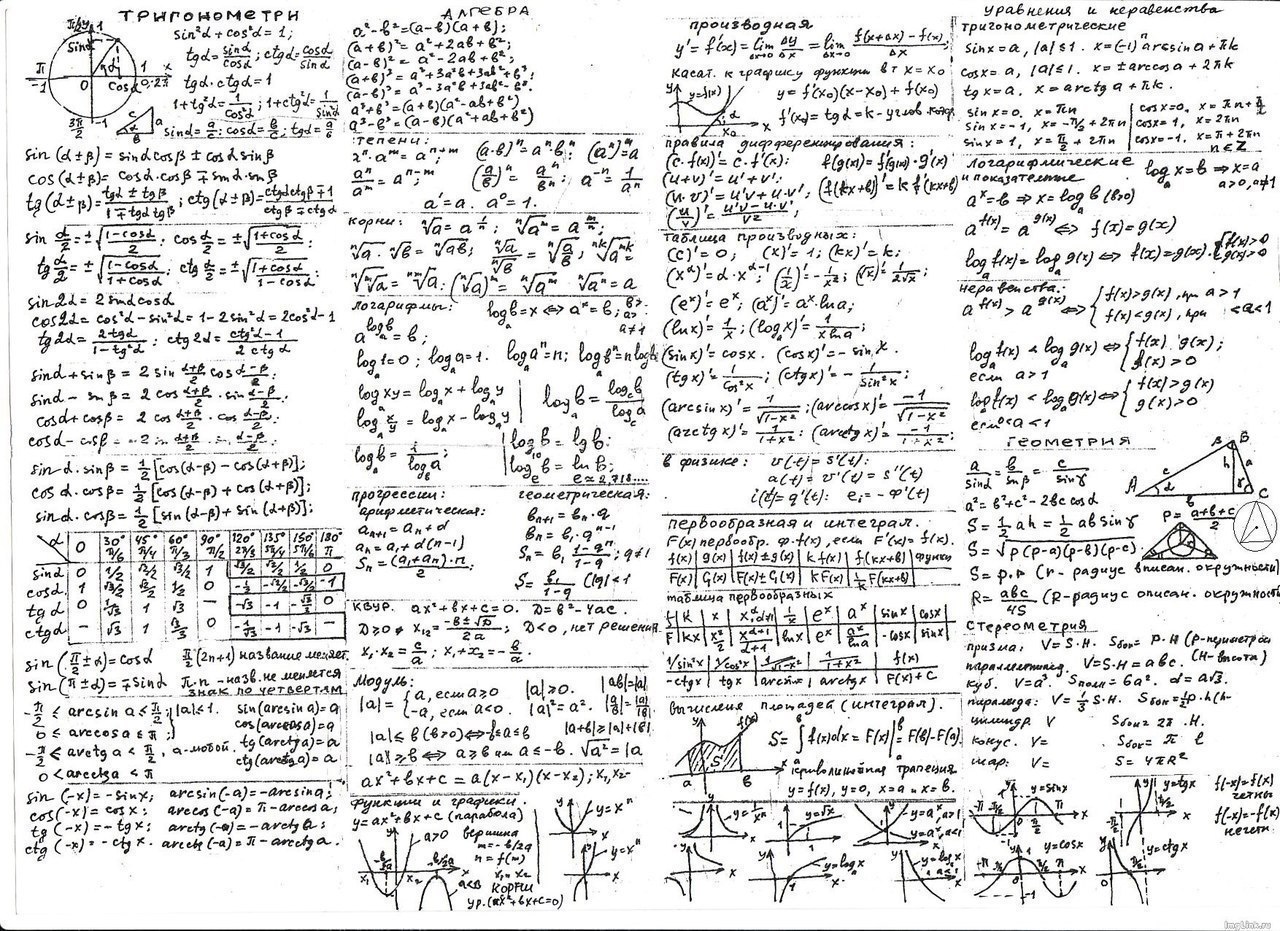 ТРИГОНОМЕТРИ
sin²α + cos²α = 1;
tgα = sinα/cosα; ctgα = cosα/sinα
tgα · ctgα = 1
1+tg²α = 1/cos²α; 1+ctg²α = 1/sin²α
sinα = a/c; cosα = b/c; tgα = a/b
sin(α±β) = sinα cosβ ± cosα sinβ
cos(α±β) = cosα·cosβ ∓ sinα·sinβ
tg(α±β) = (tgα ± tgβ)/(1∓tgα tgβ); ctg(α±β) = (ctgα ctgβ ∓ 1)/(ctgβ ∓ ctgα)
sin α/2 = ±√((1-cosα)/2); cos α/2 = ±√((1+cosα)/2);
tg α/2 = ±√((1-cosα)/(1+cosα)); ctg α/2 = ±√((1+cosα)/(1-cosα))
sin2α = 2sinα cosα
cos2α = cos²α - sin²α = 1-2sin²α = 2cos²α-1
tg2α = 2tgα/(1-tg²α); ctg2α = (ctg²α-1)/(2ctgα)
sinα + sinβ = 2 sin (α+β)/2 cos (α-β)/2;
sinα - sinβ = 2 cos (α+β)/2 · sin (α-β)/2
cosα + cosβ = 2 cos (α+β)/2 · cos (α-β)/2
cosα - cosβ = -2 sin (α+β)/2 · sin (α-β)/2
sinα·sinβ = 1/2 [cos(α-β) - cos(α+β)];
cosα·cosβ = 1/2 [cos(α-β) + cos(α+β)];
sinα·cosβ = 1/2 [sin(α-β) + sin(α+β)];
α 0 30° π/6 45° π/4 60° π/3 90° π/2 120° 2π/3 135° 3π/4 150° 5π/6 180° π
sinα 0 1/2 √2/2 √3/2 1 √3/2 √2/2 1/2 0
cosα 1 √3/2 √2/2 1/2 0 -1/2 -√2/2 -√3/2 -1
tgα 0 1/√3 1 √3 – -√3 -1 -√3/3 0
ctgα – √3 1 √3/3 0 -1/√3 -1 -√3 –
sin(π/2 ± α) = cosα π/2 (2n+1) название меняет.
sin(π ± α) = ∓sinα π·n - назв. не меняется
знак по четвертям
-π/2 ≤ arcsin a ≤ π/2; |a| ≤ 1. sin(arcsin a) = a
0 ≤ arccos a ≤ π cos(arccos a) = a
-π/2 ≤ arctg a < π/2, a-любой. tg(arctg a) = a
0 < arcctg a < π ctg(arctg a) = a
sin(-x) = -sinx; arcsin(-a) = -arcsin a;
cos(-x) = cosx; arccos(-a) = π - arccos a;
tg(-x) = -tgx; arctg(-a) = -arctg a;
ctg(-x) = -ctgx. arcctg(-a) = π - arcctg a.
АЛГЕБРА
a²-b² = (a-b)(a+b);
(a+b)² = a²+2ab+b²;
(a-b)² = a²-2ab+b²;
(a+b)³ = a³+3a²b+3ab²+b³;
(a-b)³ = a³-3a²b+3ab²-b³.
a³+b³ = (a+b)(a²-ab+b²)
a³-b³ = (a-b)(a²+ab+b²)
тепени:
aⁿ·aᵐ = aⁿ⁺ᵐ (a·b)ⁿ = aⁿ·bⁿ;
aⁿ/aᵐ = aⁿ⁻ᵐ (a/b)ⁿ = aⁿ/bⁿ; a⁻ⁿ = 1/aⁿ
a¹ = a. a⁰ = 1.
корни: ⁿ√a = a^(1/n); ⁿ√aᵐ = a^(m/n);
ⁿ√a · ⁿ√b = ⁿ√ab; ⁿ√a/ⁿ√b = ⁿ√(a/b);
логарифмы: logₐb = x ⇔ aˣ = b; a≠1
a^(logₐb) = b;
logₐ1 = 0; logₐa = 1. logₐaⁿ = n; logₐbⁿ = n logₐb
logₐxy = logₐx + logₐy
logₐ(x/y) = logₐx - logₐy logₐb = log_c b/log_c a
logₐb = 1/log_b a
log₁₀b = lg b;
logₑb = ln b; e≈2,718....
прогрессии: геометрическая:
арифметическая: bₙ₊₁ = bₙ·q
aₙ₊₁ = aₙ+d bₙ = b₁·qⁿ⁻¹
aₙ = a₁+d(n-1) Sₙ = b₁·(1-qⁿ)/(1-q); q≠1
Sₙ = (a₁+aₙ)·n/2; S = b₁/(1-q) (|q|<1
КВУР. ax²+bx+c = 0. D = b²-4ac.
D≥0 x₁₂ = (-b±√D)/2a; D<0, нет решения.
x₁·x₂ = c/a; x₁+x₂ = -b/a.
Модуль:
|a| = {a, если a≥0 |a|≥0. |ab|=|a|
-a, если a<0. |a|² = a².
|a|≤b (b>0) ⇔ -b≤a≤b |a+b|≤|a|+|b|
|a|≥b ⇔ a≥b или a≤-b. √a² = |a
ax²+bx+c = a(x-x₁)(x-x₂); x₁,x₂-
функции и графики.
y = ax²+bx+c (парабола)
a>0 вершина
m = -b/2a
n = f(m)
a<0 корни
ур. (ax²+bx+c=0)
y=xⁿ
y=xⁿ
производная
y' = f'(x) = lim Δx→0 Δy/Δx = lim Δx→0 (f(x+Δx)-f(x))/Δx;
касат. к графику функции в т x = x₀
y=f(x) y = f'(x₀)(x-x₀) + f(x₀)
f'(x₀) = tgα = k - углов. коэф.
правила дифференцирования:
(c·f(x))' = c·f'(x); f(g(x)) = f'(g(x))·g'(x)
(u+v)' = u'+v';
(u·v)' = u'v + u·v'; (f(kx+b))' = k f'(kx+b)
(u/v)' = (u'v-u·v')/v²;
таблица производных:
(c)' = 0; (x)' = 1; (kx)' = k;
(x^α)' = α·x^(α-1); (1/x)' = -1/x²; (√x)' = 1/(2√x);
(eˣ)' = eˣ; (aˣ)' = aˣ·ln a;
(lnx)' = 1/x; (logₐx)' = 1/(x ln a)
(sinx)' = cosx. (cosx)' = -sin x.
(tgx)' = 1/cos²x; (ctgx)' = -1/sin²x;
(arcsinx)' = 1/√(1-x²); (arccosx)' = -1/√(1-x²)
(arctgx)' = 1/(1+x²); (arcctgx)' = -1/(1+x²);
в физике: v(t) = s'(t);
a(t) = v'(t) = s''(t)
i(t) = q'(t); eᵢ = -Φ'(t)
первообразная и интеграл.
F(x) первообр. ф. f(x), если F'(x) = f(x).
f(x) g(x) f(x)±g(x) k f(x) f(kx+b) функц
F(x) G(x) F(x)±G(x) kF(x) 1/k F(kx+b)
таблица первообразных
f k x xᵅ, α≠1 1/x eˣ aˣ sinx cosx
F kx x²/2 x^(α+1)/(α+1) lnx eˣ aˣ/ln a -cosx sinx
1/sin²x 1/cos²x 1/√(1-x²) 1/(1+x²) f(x)
-ctgx tgx arcsinx arctgx F(x)+C
вычисления площадей (интеграл).
S = ∫ f(x)dx = F(x)| = F(b)-F(a).
криволинейная трапеция
y=f(x), y=0, x=a и x=b.
y=√x
y=logₐx
уравнения и неравенства
тригонометрические
sinx = a, |a|≤1. x = (-1)ⁿ arcsin a + πk
cosx = a, |a|≤1. x = ±arccos a + 2πk
tgx = a, x = arctg a + πk.
sinx = 0. x = πn cosx = 0, x = πn + π/2
sinx = -1, x = -π/2 + 2πn cosx = 1, x = 2πn
sinx = 1, x = π/2 + 2πn cosx = -1, x = π + 2πn
n∈Z
логарифмические
и показательные logₐx = b ⇒ x = a
aˣ = b ⇒ x = logₐb (b>0) a>0, a≠1
a^f(x) = a^g(x) ⇔ f(x) = g(x)
logₐf(x) = logₐg(x) ⇔ f(x) = g(x) {f(x)>0 g(x)>0
неравенства:
a^f(x) > a^g(x) ⇔ {f(x)>g(x), при a>1
f(x)<g(x), при <a<1
logₐf(x) < logₐg(x) ⇔ {f(x) g(x);
f(x)>0
если a>1
logₐf(x) < logₐg(x) ⇔ {f(x)>g(x)
g(x)>0
если <a<1
геометрия
a/sinα = b/sinβ = c/sinγ
a² = b²+c²-2bc cosα
S = 1/2 ah = 1/2 ab sinγ P = (a+b+c)/2
S = √(p(p-a)(p-b)(p-c))
S = p·r (r - радиус вписан. окружности)
R = abc/4S (R-радиус описан. окружность
стереометрия
призма: V = S·H. Sбок = P·H (P-периметр осн
параллелепипед. V = S·H = abc. (H-высота)
куб. V = a³. Sполн = 6a². d = a√3.
пирамида: V = 1/3 S·H.
цилиндр. V Sбок = 2π ·H.
конус. V= Sбок = π l
шар: V= S = 4πR²
y=sinx
y=cosx
y=tgx
y=ctgx
f(-x)=f(x)
четны
f(-x)=-f(x)
нечет.
ImgLink.ru